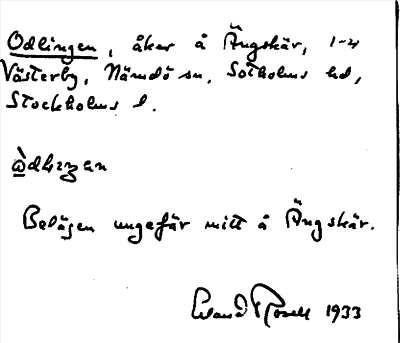 Odlingen, åker å Ängskär, 1-4
Västerby, Nämdö sn, Sotholms hd,
Stockholms l.
Belägen ungefär mitt å Ängskär.
Erland Rosell 1933